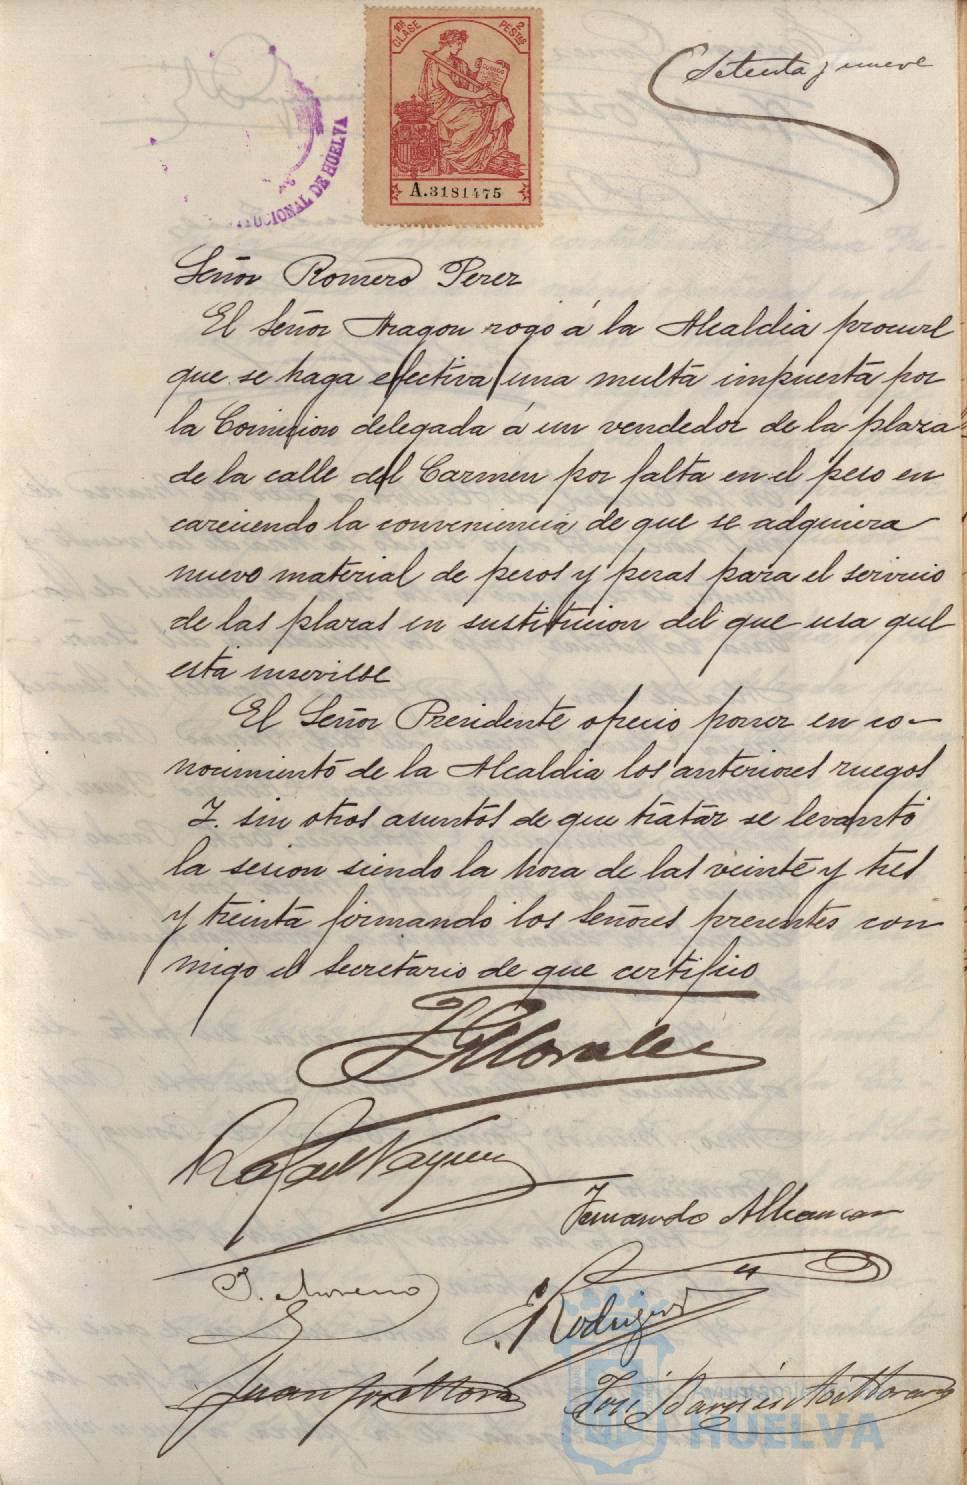 10ª CLASE 2 PESTAS
A.3181475
UCIONAL DE HUELVA
Setenta y nueve
Señor Romero Perez
El Señor Aragon rogó á la Alcaldia procure
que se haga efectiva una multa impuesta por
la Comision delegada á un vendedor de la plaza
de la calle del Carmen por falta en el peso en
careciendo la conveniencia de que se adquiera
nuevo material de pesos y pesas para el servicio
de las plazas en sustitucion del que usa que
está inservible
El Señor Presidente ofrecio poner en co-
nocimiento de la Alcaldia los anteriores ruegos
Y sin otros asuntos de que tratar se levantó
la sesion siendo la hora de las veinte y tres
y treinta firmando los Señores presentes con
migo el Secretario de que certifico
Morales
Rafael Vazquez
Fernando
J. Moreno
Rodriguez
Juan José Mora
José Garcia
HUELVA